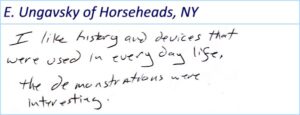 E. Ungavsky of Horseheads, NY
I like history and devices that
were used in every day life,
the demonstrations were
interesting.